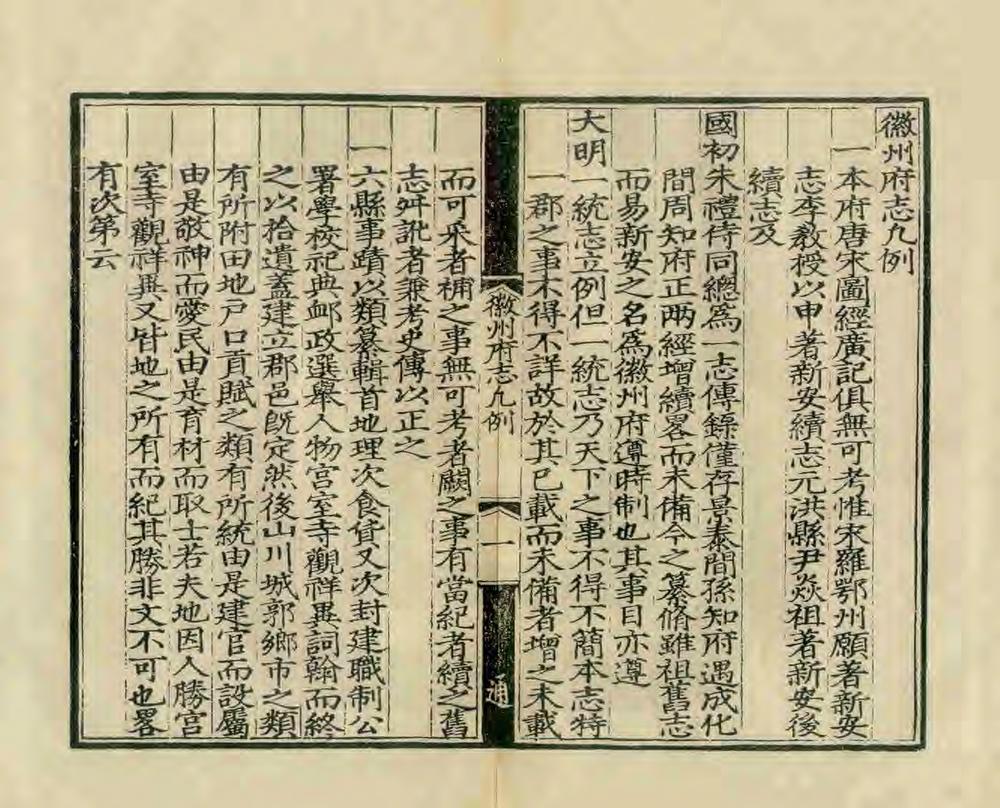 徽州府志凡例
一本府唐宋圖經廣記俱無可考惟宋羅鄂州願著新安
志李教授以申著新安續志元洪縣尹焱祖著新安後
續志及
國初朱禮侍同總爲一志傳錄僅存景泰間孫知府遇成化
間周知府正兩經增續畧而未備今之纂脩雖祖舊志
而易新安之名爲徽州府遵時制也其事目亦遵
大明一統志立例但一統志乃天下之事不得不簡本志特
一郡之事不得不詳故於其已載而未備者增之未載
徽州府志凡例
一
通
而可采者補之事無可考者闕之事有當紀者續之舊
志舛訛者兼考史傳以正之
一六縣事蹟以類纂輯首地理次食貨又次封建職制公
署學校祀典卹政選舉人物宮室寺觀祥異詞翰而終
之以拾遺蓋建立郡邑既定然後山川城郭鄉市之類
有所附田地戶口貢賦之類有所統由是建官而設屬
由是敬神而愛民由是育材而取士若夫地因人勝宮
室寺觀祥異又皆地之所有而紀其勝非文不可也畧
有次第云